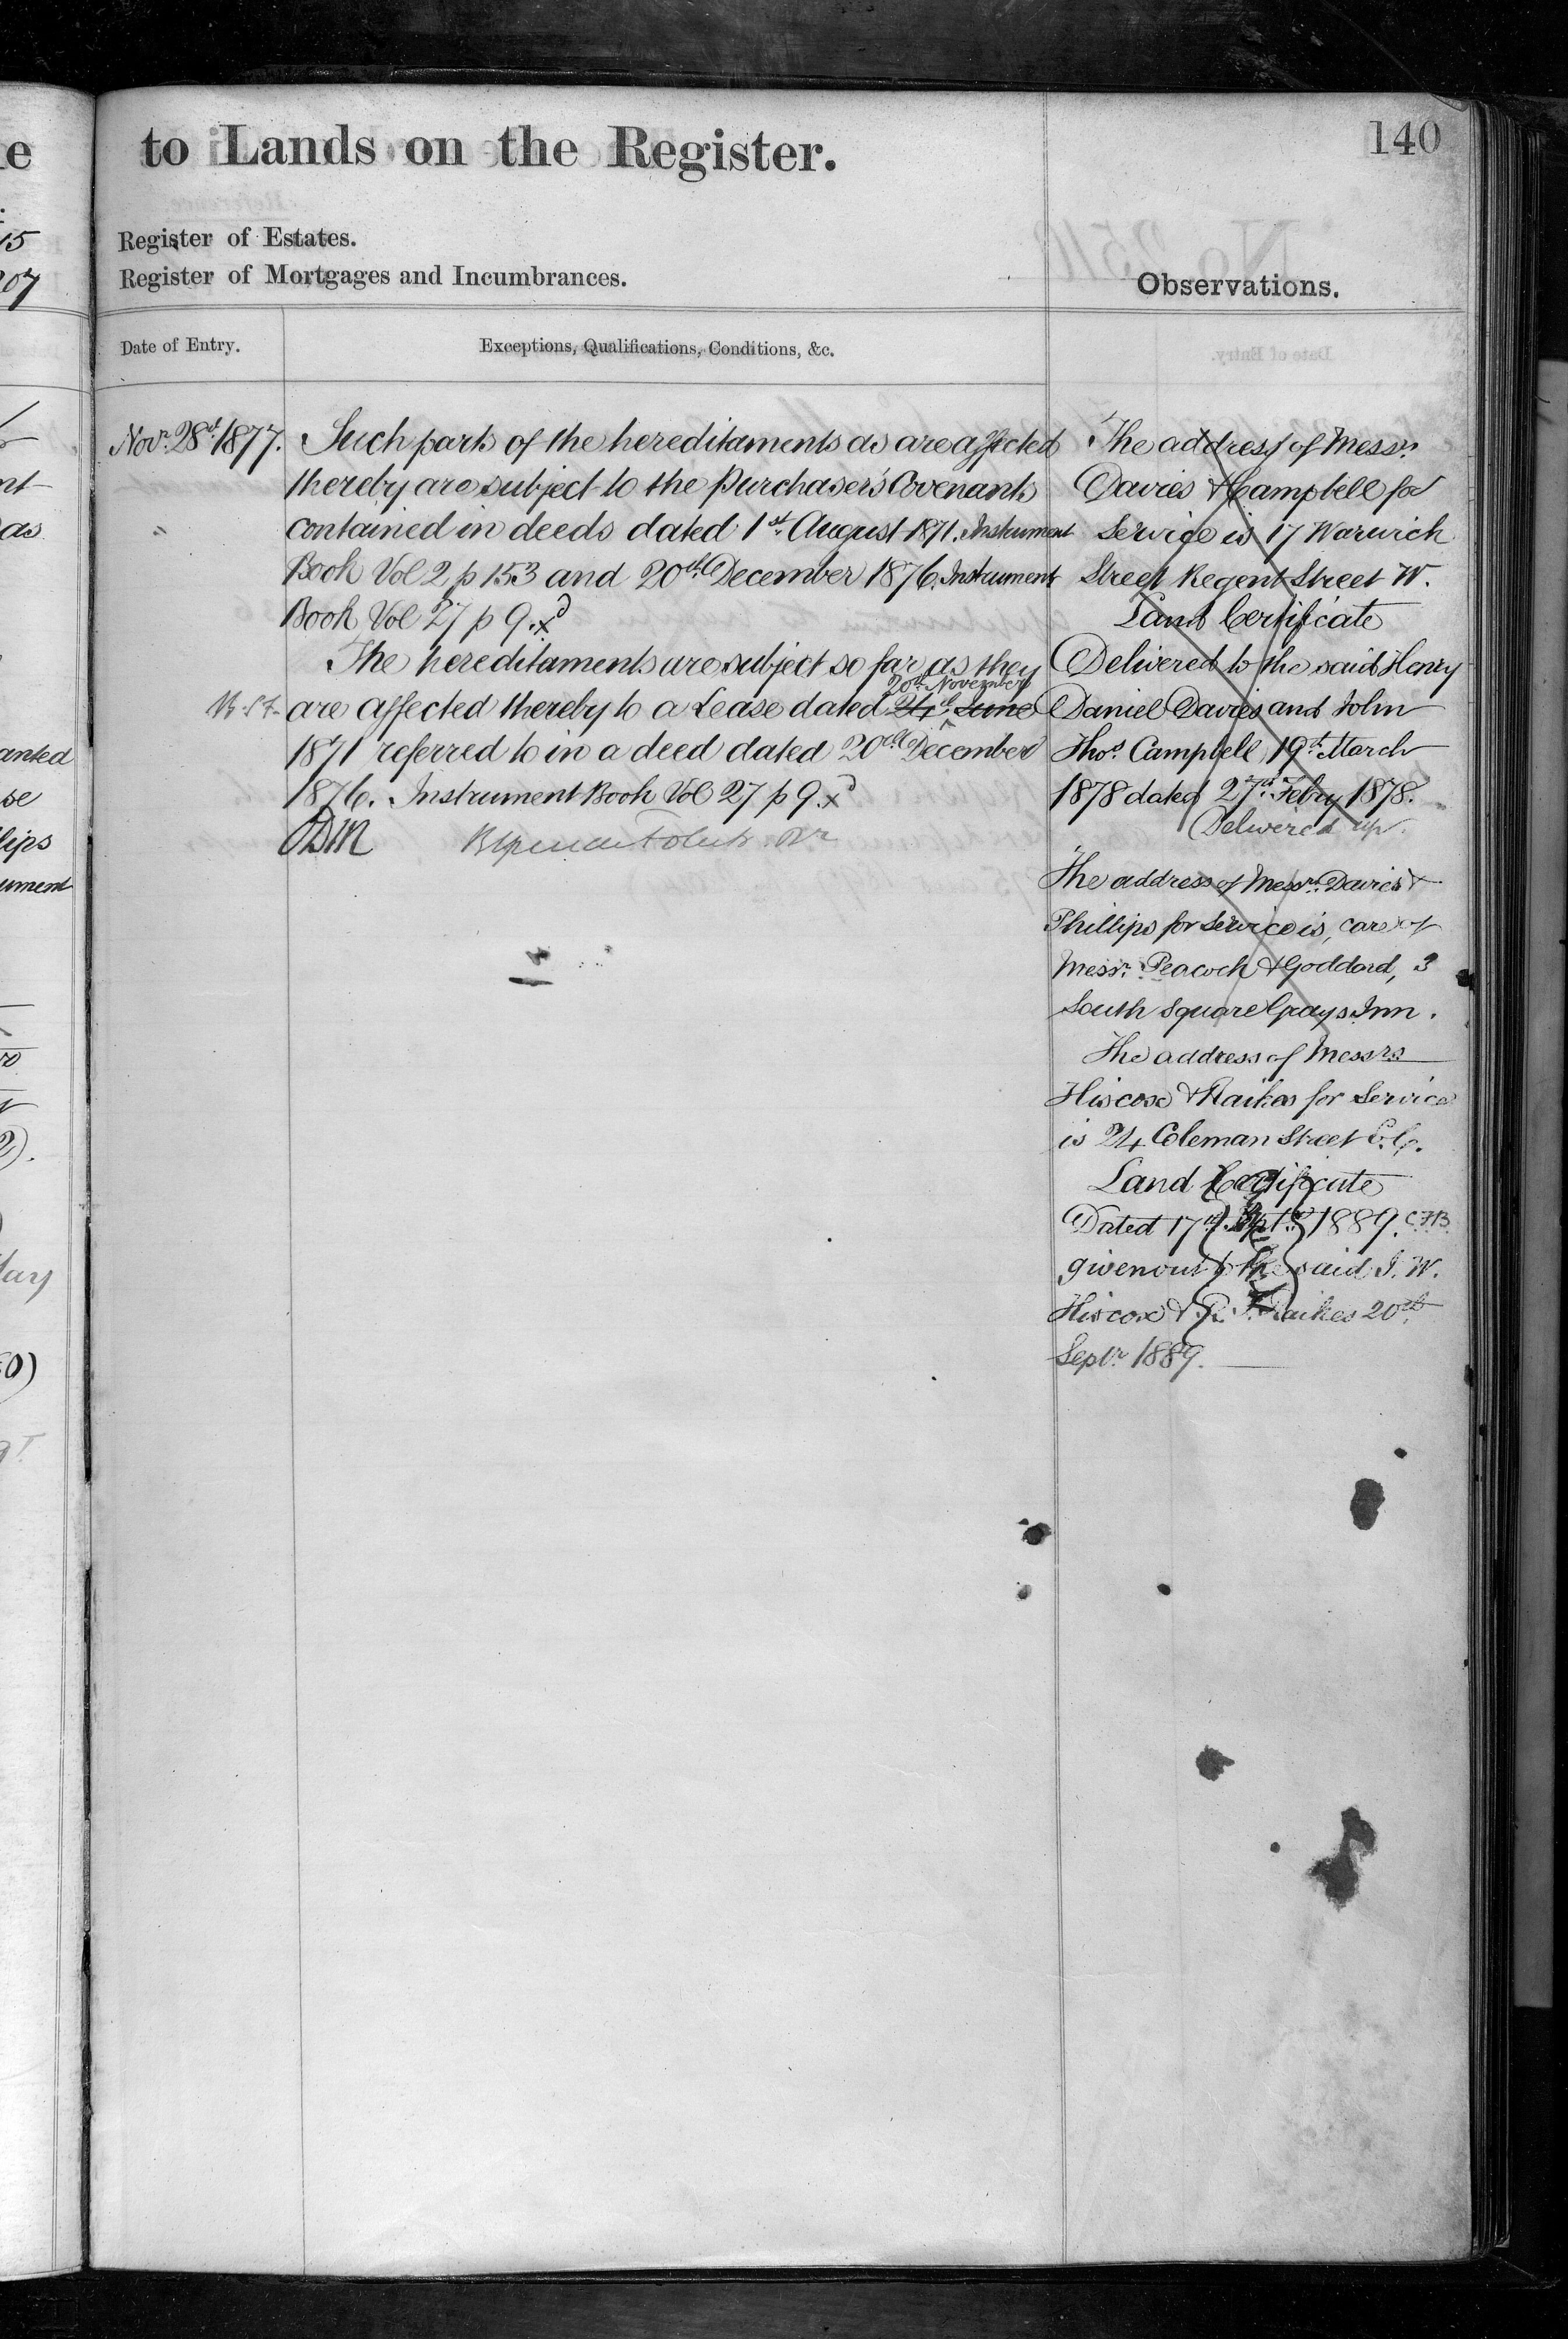 to Lands on the Register.
140
Register of Estates.
Register of Mortgages and Incumbrances.
Observations.
Date of Entry.
Exceptions, Qualifications, Conditions, &c.
Novr. 28th 1877.
Such parts of the hereditaments as are affected
thereby are subject to the Purchaser's Covenants
contained in deeds dated 1st August 1871. Instrument
Book Vol 2 p 153 and 20th December 1876. Instrument
Book Vol 27 p 9. xd
The hereditaments are subject so far as they
20th November
are affected thereby to a Lease dated 24th June
1871 referred to in a deed dated 20th December
1876. Instrument Book Vol 27 p 9. xd
The address of Messrs.
Davies & Campbell for
Service is 17 Warwick
Street Regent Street W.
Land Certificate
Delivered to the said Henry
Daniel Davies and John
Thos. Campbell 19th March
1878 dated 27th Febry 1878.
Delivered up.
The address of Messrs. Davies &
Phillips for Service is, care of
Messrs. Peacock & Goddard, 3
South Square Grays Inn.
The address of Messrs
Hiscox & Raikes for Service
is 24 Coleman Street E.C.
Land Certificate
Dated 17th Septr. 1889. C.F.B.
given out to the said J. W.
Hiscox & R. T. Raikes 20th
Septr. 1889.